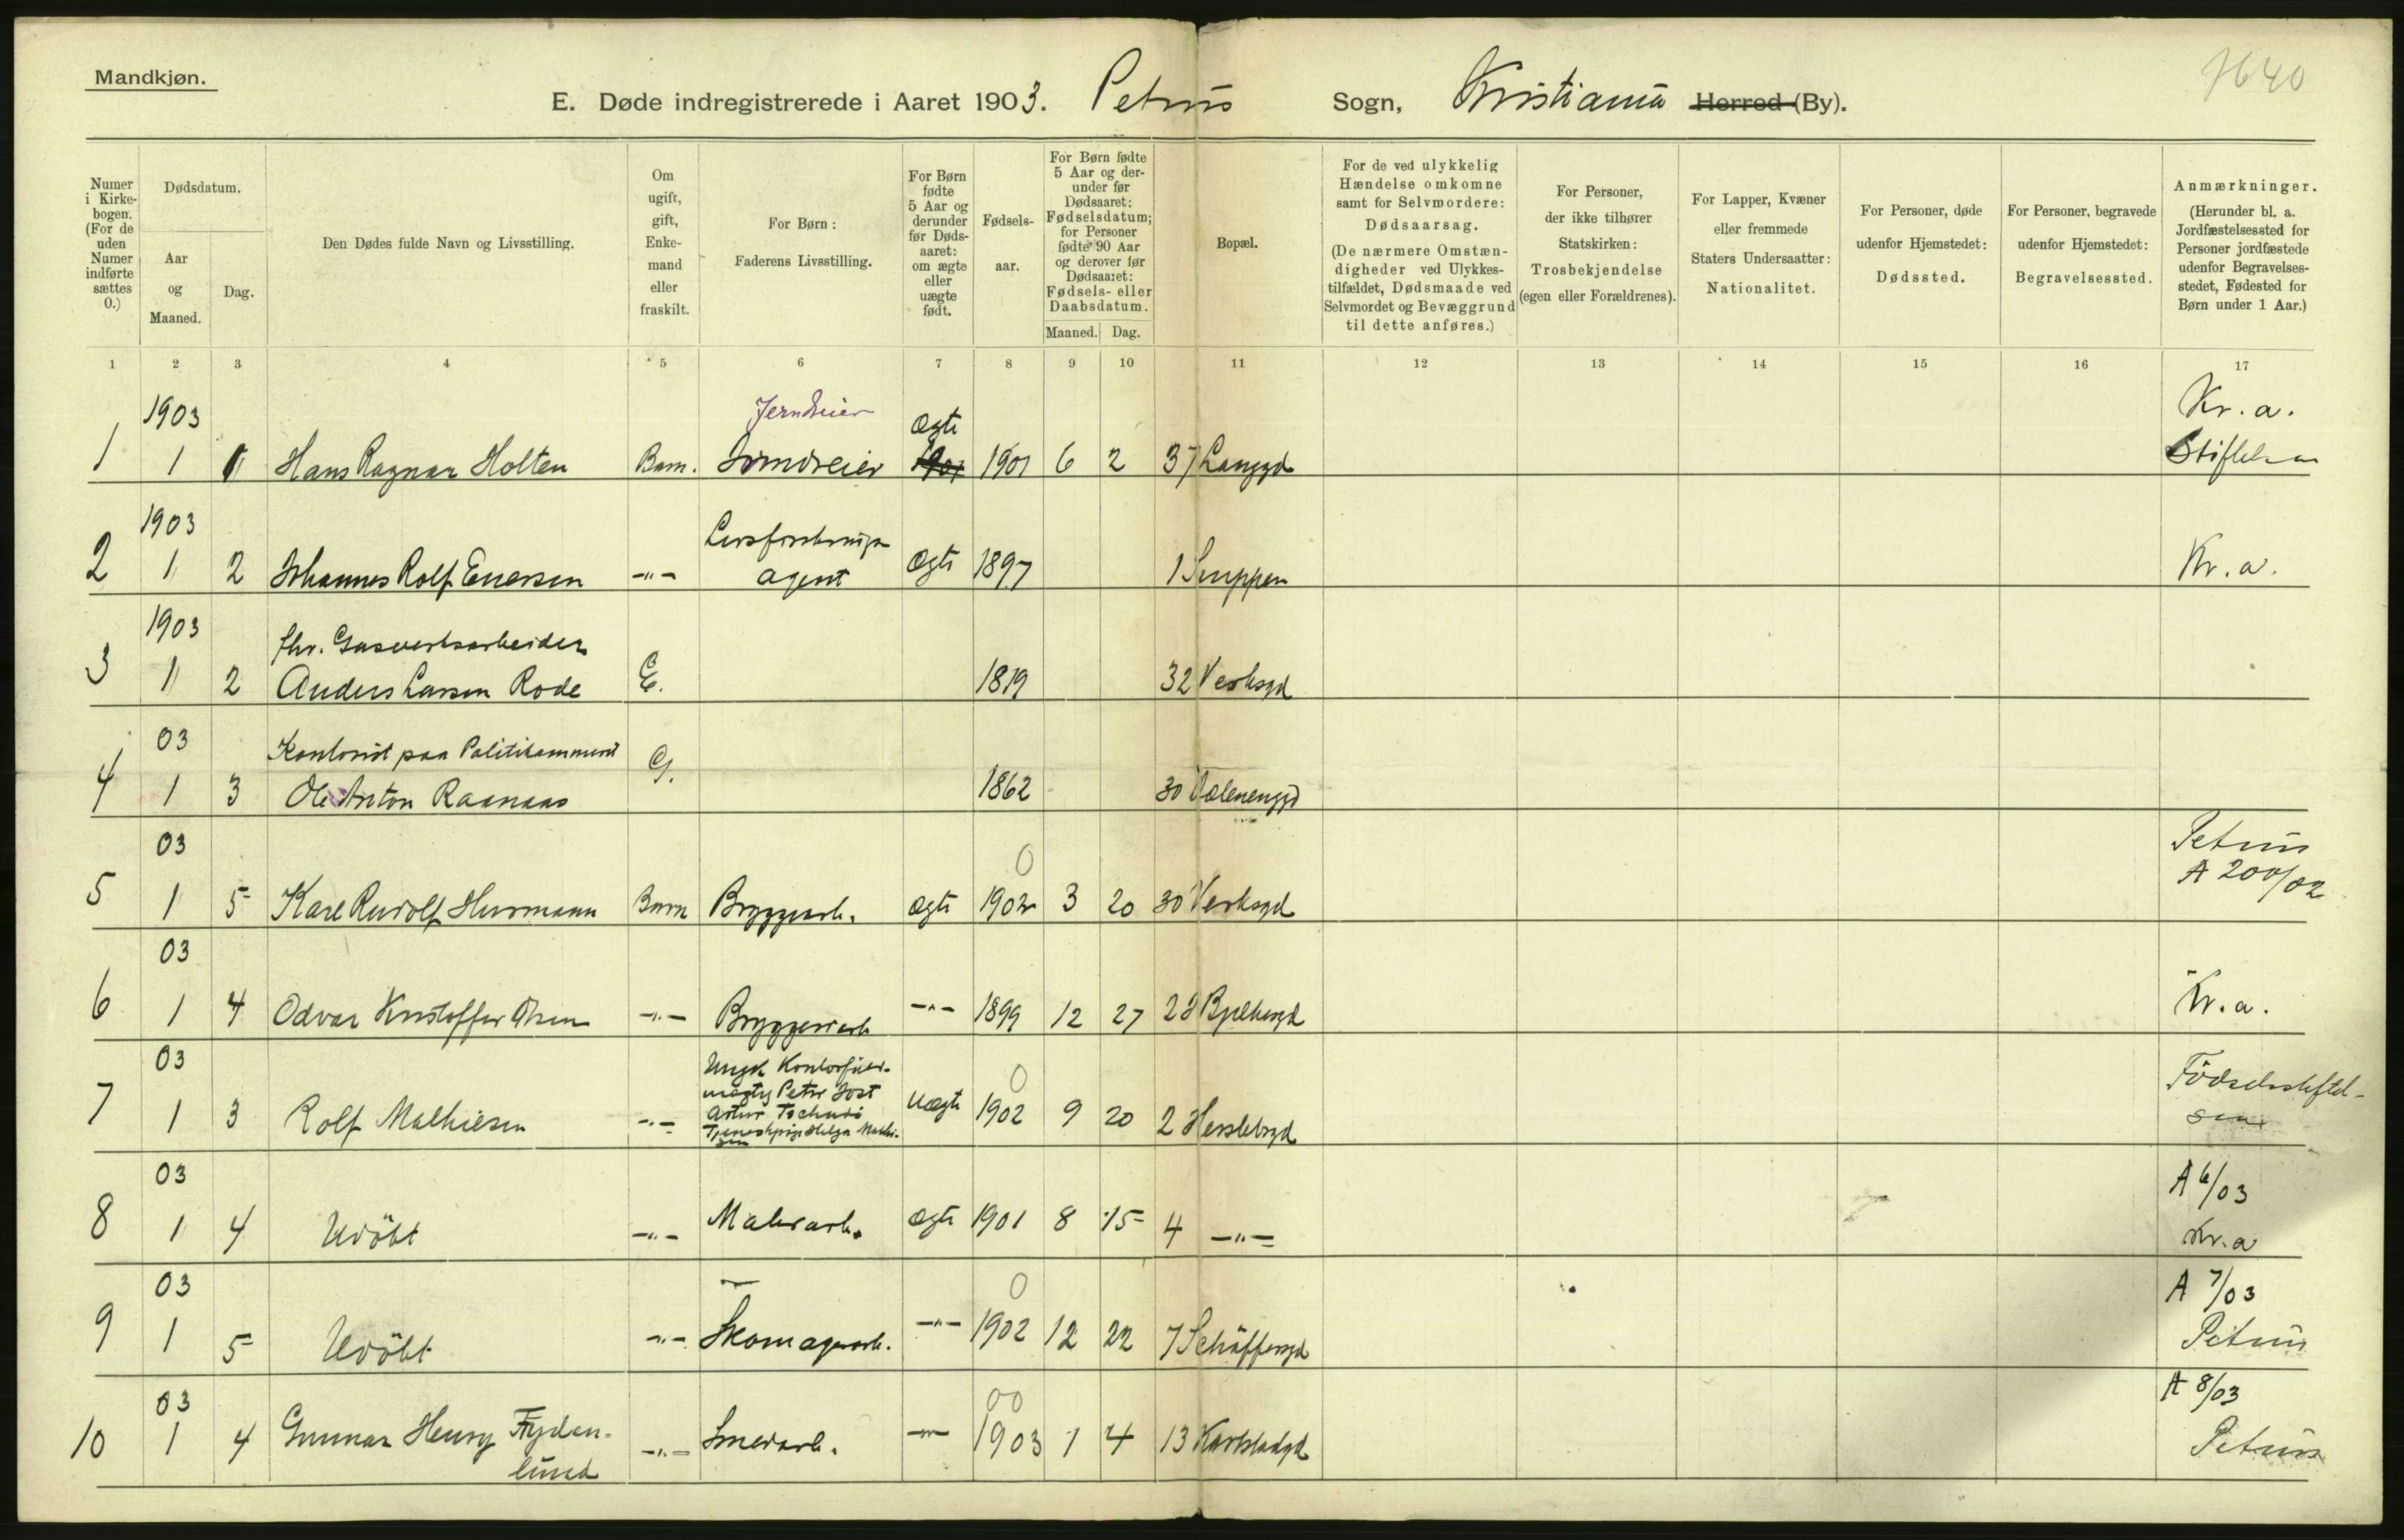 Mandkjøn.
7640
E. Døde indregistrerede i Aaret 1903. Petrus Sogn, Kristiania Herred (By).
Numer i Kirke-bogen. (For de uden Numer indførte sættes 0.)
Dødsdatum.
Aar og Maaned.
Dag.
Den Dødes fulde Navn og Livsstilling.
Om ugift, gift, Enke-mand eller fraskilt.
For Børn:
Faderens Livsstilling.
For Børn fødte 5 Aar og derunder før Døds-aaret: om ægte eller uægte født.
Fødsels-aar.
For Børn fødte 5 Aar og der-under før Dødsaaret: Fødselsdatum; for Personer fødte 90 Aar og derover før Dødsaaret: Fødsels- eller Daabsdatum.
Maaned. Dag.
Bopæl.
For de ved ulykkelig Hændelse omkomne samt for Selvmordere: Dødsaarsag.
(De nærmere Omstæn-digheder ved Ulykkes-tilfældet, Dødsmaade ved Selvmordet og Bevæggrund til dette anføres.)
For Personer, der ikke tilhører Statskirken: Trosbekjendelse (egen eller Forældrenes).
For Lapper, Kvæner eller fremmede Staters Undersaatter: Nationalitet.
For Personer, døde udenfor Hjemstedet: Dødssted.
For Personer, begravede udenfor Hjemstedet: Begravelsessted.
Anmærkninger.
(Herunder bl. a. Jordfæstelsessted for Personer jordfæstede udenfor Begravelses-stedet, Fødested for Børn under 1 Aar.)
1 2 3 4 5 6 7 8 9 10 11 12 13 14 15 16 17
1903 Jerndreier ægte Kr. a.
1 1 1 Hans Ragnar Holten Barn. 1901 1901 6 2 37 Langgd Stiftelsen
1903 Livsforsikrings
2 1 2 Johannes Rolf Enersen -"- agent ægte 1897 1 Kr. a.
1903 fhv. Gasverksarbeider
3 1 2 Anders Larsen Rode E. 1819 32 Verksgd
03 Kontorist paa Politikammeret
4 1 3 Ole Anton Raanaas G. 1862 30 Vålerenggd
03 0 Petrus
5 1 5 Karl Rudolf Hurmann Barn Bryggearb. ægte 1902 3 20 30 Verksgd A 200/02
03
6 1 4 Odvar Kristoffer Olsen -"- Bryggeriarb -"- 1899 12 27 28 Bjelkesgd Kr. a.
03 Ungk. Kontorfuld-
mægtig Peter Jost 0 Fødselsstiftel-
7 1 3 Rolf Mathiesen -"- Artur Tschudi uægte 1902 9 20 2 Herslebsgd sen
Tjenestepige Helga Mathi-
sen
03 A 6/03
8 1 4 Udöbt -"- Malerarb. ægte 1901 8 15 4 -"- Kr. a
03 0 A 7/03
9 1 5 Udöbt -"- Skomagerarb. -"- 1902 12 22 7 Schäffersgd Petrus
03 00 A 8/03
10 1 4 Gunnar Henry Frydenlund -"- Smedarb. -"- 1903 1 4 13 Karlstadgd Petrus